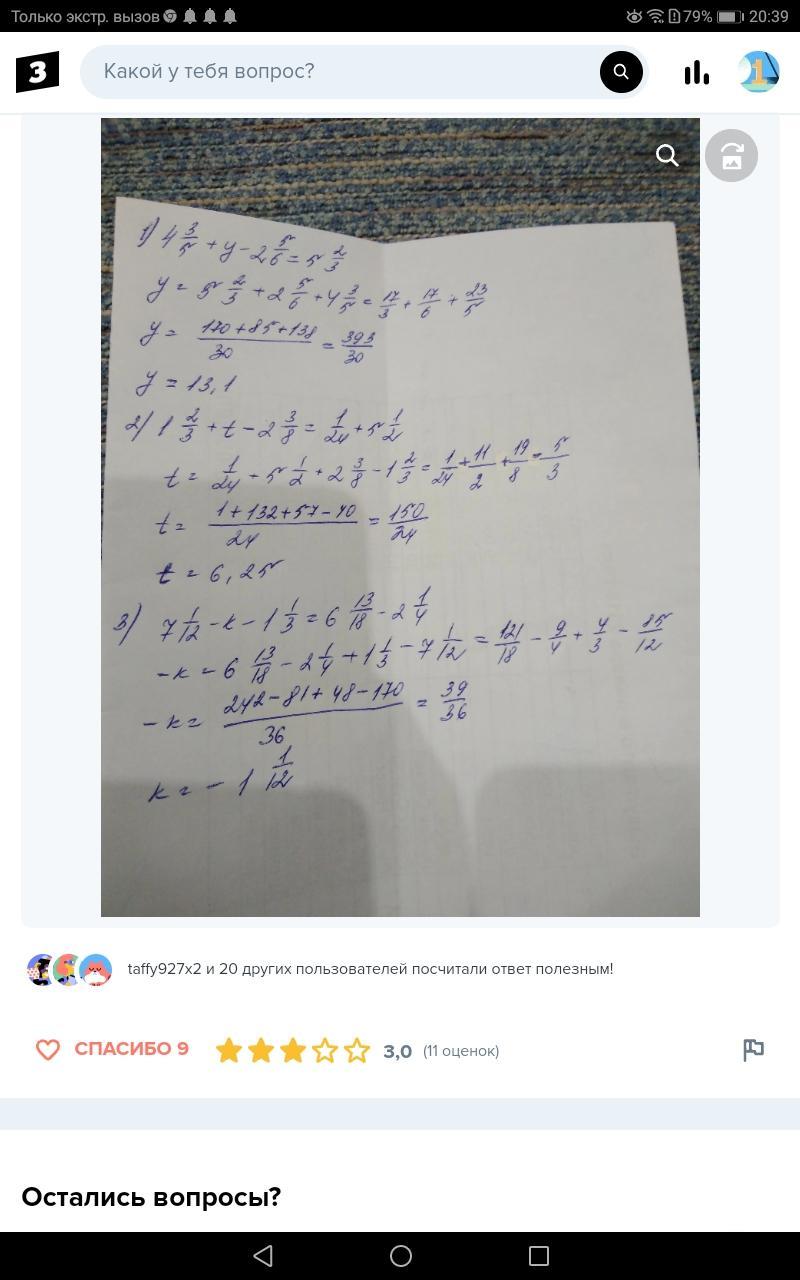 Только экстр. вызов 79% 20:39
Какой у тебя вопрос?
1) 4 3/5 + y - 2 5/6 = 5 2/3
y = 5 2/3 + 2 5/6 + 4 3/5 = 17/3 + 17/6 + 23/5
y = (170+85+138)/30 = 393/30
y = 13,1
2) 1 2/3 + t - 2 3/8 = 1/24 + 5 1/2
t = 1/24 + 5 1/2 + 2 3/8 - 1 2/3 = 1/24 + 11/2 + 19/8 - 5/3
t = (1+132+57-40)/24 = 150/24
t = 6,25
3) 7 1/12 - k - 1 1/3 = 6 13/18 - 2 1/4
-k = 6 13/18 - 2 1/4 + 1 1/3 - 7 1/12 = 121/18 - 9/4 + 4/3 - 85/12
-k = (242-81+48-170)/36 = 39/36
k = - 1 1/12
taffy927x2 и 20 других пользователей посчитали ответ полезным!
СПАСИБО 9 3,0 (11 оценок)
Остались вопросы?